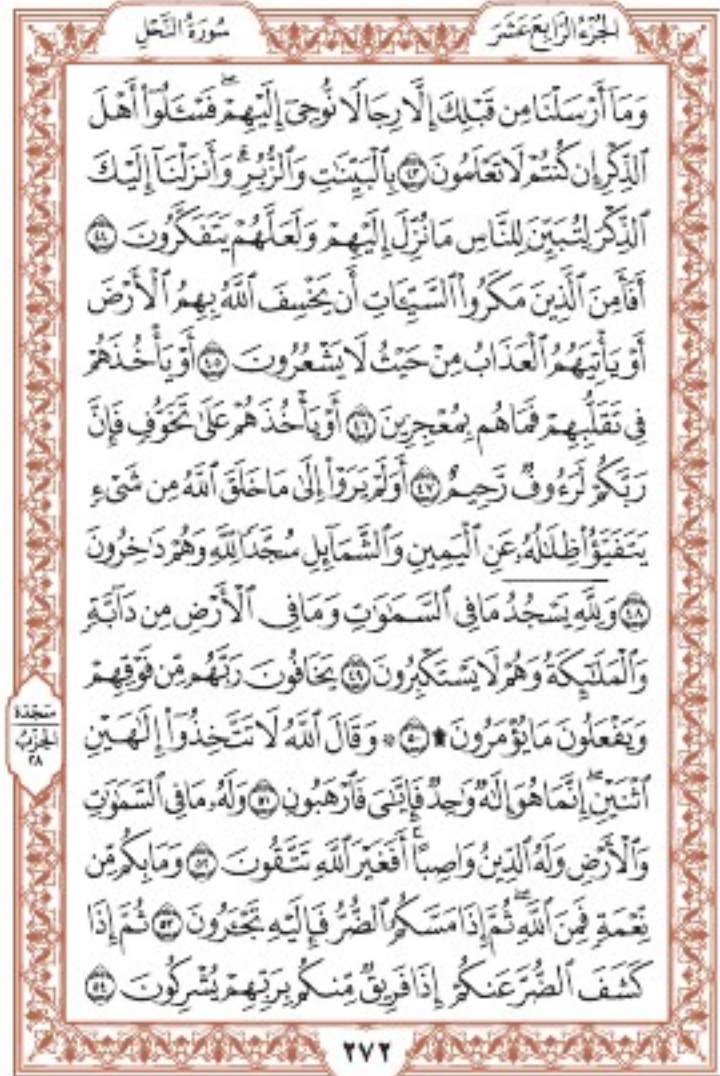 الجُزْءُ الرَّابِعَ عَشَرَ
سُورَةُ النَّحْلِ
وَمَآ أَرْسَلْنَا مِن قَبْلِكَ إِلَّا رِجَالًا نُّوحِىٓ إِلَيْهِمْ ۖ فَسْـَٔلُوٓا۟ أَهْلَ
ٱلذِّكْرِ إِن كُنتُمْ لَا تَعْلَمُونَ ٤٣ بِٱلْبَيِّنَـٰتِ وَٱلزُّبُرِ ۗ وَأَنزَلْنَآ إِلَيْكَ
ٱلذِّكْرَ لِتُبَيِّنَ لِلنَّاسِ مَا نُزِّلَ إِلَيْهِمْ وَلَعَلَّهُمْ يَتَفَكَّرُونَ ٤٤
أَفَأَمِنَ ٱلَّذِينَ مَكَرُوا۟ ٱلسَّيِّـَٔاتِ أَن يَخْسِفَ ٱللَّهُ بِهِمُ ٱلْأَرْضَ
أَوْ يَأْتِيَهُمُ ٱلْعَذَابُ مِنْ حَيْثُ لَا يَشْعُرُونَ ٤٥ أَوْ يَأْخُذَهُمْ
فِى تَقَلُّبِهِمْ فَمَا هُم بِمُعْجِزِينَ ٤٦ أَوْ يَأْخُذَهُمْ عَلَىٰ تَخَوُّفٍ فَإِنَّ
رَبَّكُمْ لَرَءُوفٌ رَّحِيمٌ ٤٧ أَوَلَمْ يَرَوْا۟ إِلَىٰ مَا خَلَقَ ٱللَّهُ مِن شَىْءٍ
يَتَفَيَّؤُا۟ ظِلَـٰلُهُۥ عَنِ ٱلْيَمِينِ وَٱلشَّمَآئِلِ سُجَّدًا لِّلَّهِ وَهُمْ دَٰخِرُونَ
٤٨ وَلِلَّهِ يَسْجُدُ مَا فِى ٱلسَّمَـٰوَٰتِ وَمَا فِى ٱلْأَرْضِ مِن دَآبَّةٍ
وَٱلْمَلَـٰٓئِكَةُ وَهُمْ لَا يَسْتَكْبِرُونَ ٤٩ يَخَافُونَ رَبَّهُم مِّن فَوْقِهِمْ
وَيَفْعَلُونَ مَا يُؤْمَرُونَ ۩ ٥٠ ۞ وَقَالَ ٱللَّهُ لَا تَتَّخِذُوٓا۟ إِلَـٰهَيْنِ
ٱثْنَيْنِ ۖ إِنَّمَا هُوَ إِلَـٰهٌ وَٰحِدٌ فَإِيَّـٰىَ فَٱرْهَبُونِ ٥١ وَلَهُۥ مَا فِى ٱلسَّمَـٰوَٰتِ
وَٱلْأَرْضِ وَلَهُ ٱلدِّينُ وَاصِبًا ۚ أَفَغَيْرَ ٱللَّهِ تَتَّقُونَ ٥٢ وَمَا بِكُم مِّن
نِّعْمَةٍ فَمِنَ ٱللَّهِ ۖ ثُمَّ إِذَا مَسَّكُمُ ٱلضُّرُّ فَإِلَيْهِ تَجْـَٔرُونَ ٥٣ ثُمَّ إِذَا
كَشَفَ ٱلضُّرَّ عَنكُمْ إِذَا فَرِيقٌ مِّنكُم بِرَبِّهِمْ يُشْرِكُونَ ٥٤
سَجْدَة
الحِزْبُ
٢٨
٢٧٢